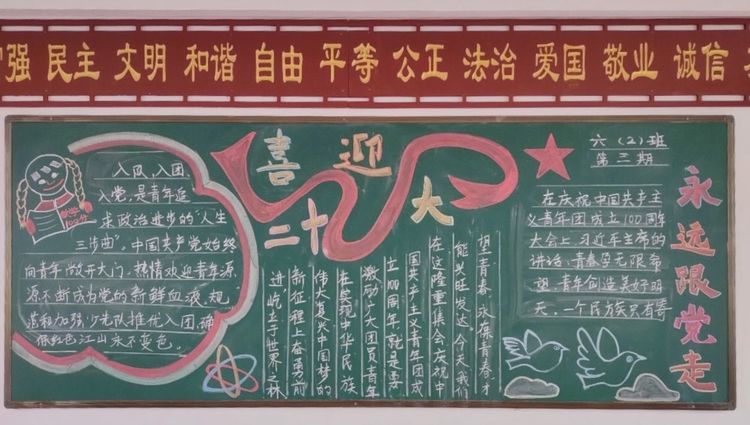 强 民主 文明 和谐 自由 平等 公正 法治 爱国 敬业 诚信
喜迎
二十大
六(2)班
第三期
永远跟党走
入队,入团,
入党,是青年追
求政治进步的“人生
三步曲”,中国共产党始终
向青年敞开大门,热情欢迎青年源
源不断成为党的新鲜血液,规
范和加强少先队推优入团,确
保红色江山永不变色。
在庆祝中国共产主
义青年团成立100周年
大会上,习近平主席的
讲话:青春孕无限希
望,青年创造美好明
天,一个民族只有寄
望青春,永葆青春才
能兴旺发达,今天我们
在这隆重集会庆祝中
国共产主义青年团成
立100周年,就是要
激励广大团员青年
在实现中华民族
伟大复兴中国梦的
新征程上奋勇前
进,屹立于世界之林